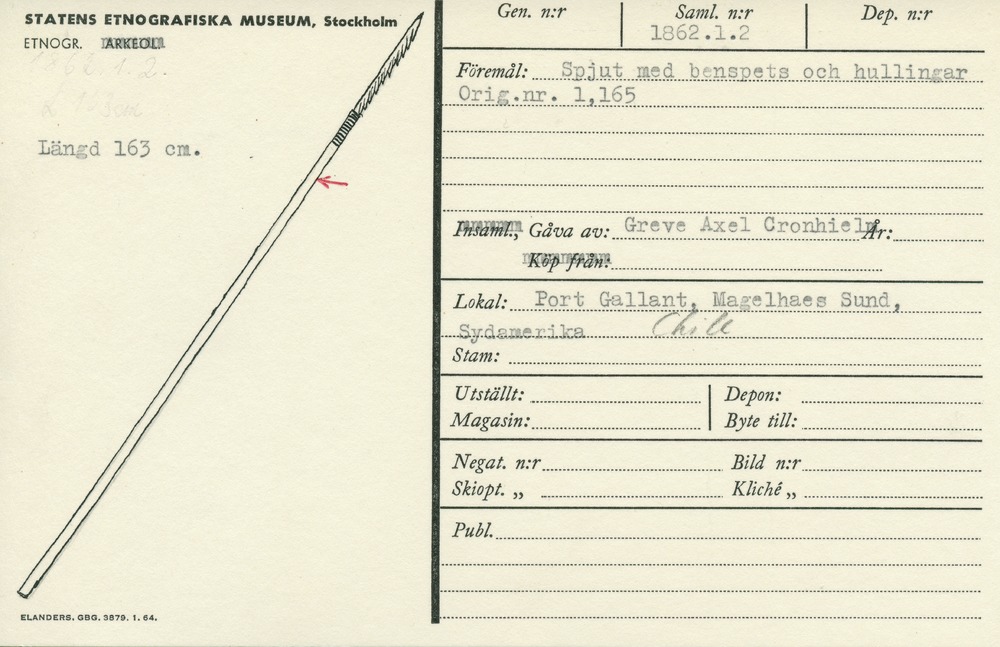 STATENS ETNOGRAFISKA MUSEUM, Stockholm
ETNOGR. ARKEOL.
1862.1.2.
Längd 163 cm.
ELANDERS. GBG. 3879. 1. 64.
Gen. n:r Saml. n:r Dep. n:r
1862.1.2
Föremål: Spjut med benspets och hullingar
Orig.nr. 1,165
Insaml., Gåva av: Greve Axel Cronhielm År:
Köp från:
Lokal: Port Gallant, Magelhaes Sund,
Sydamerika Chile
Stam:
Utställt: Depon:
Magasin: Byte till:
Negat. n:r Bild n:r
Skiopt. „ Kliché „
Publ.